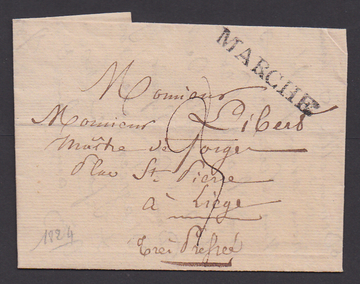 MARCHE
Monsieur
Monsieur Libert
Maître de forges
Place St Pierre
à Liège
Très Pressé
1824